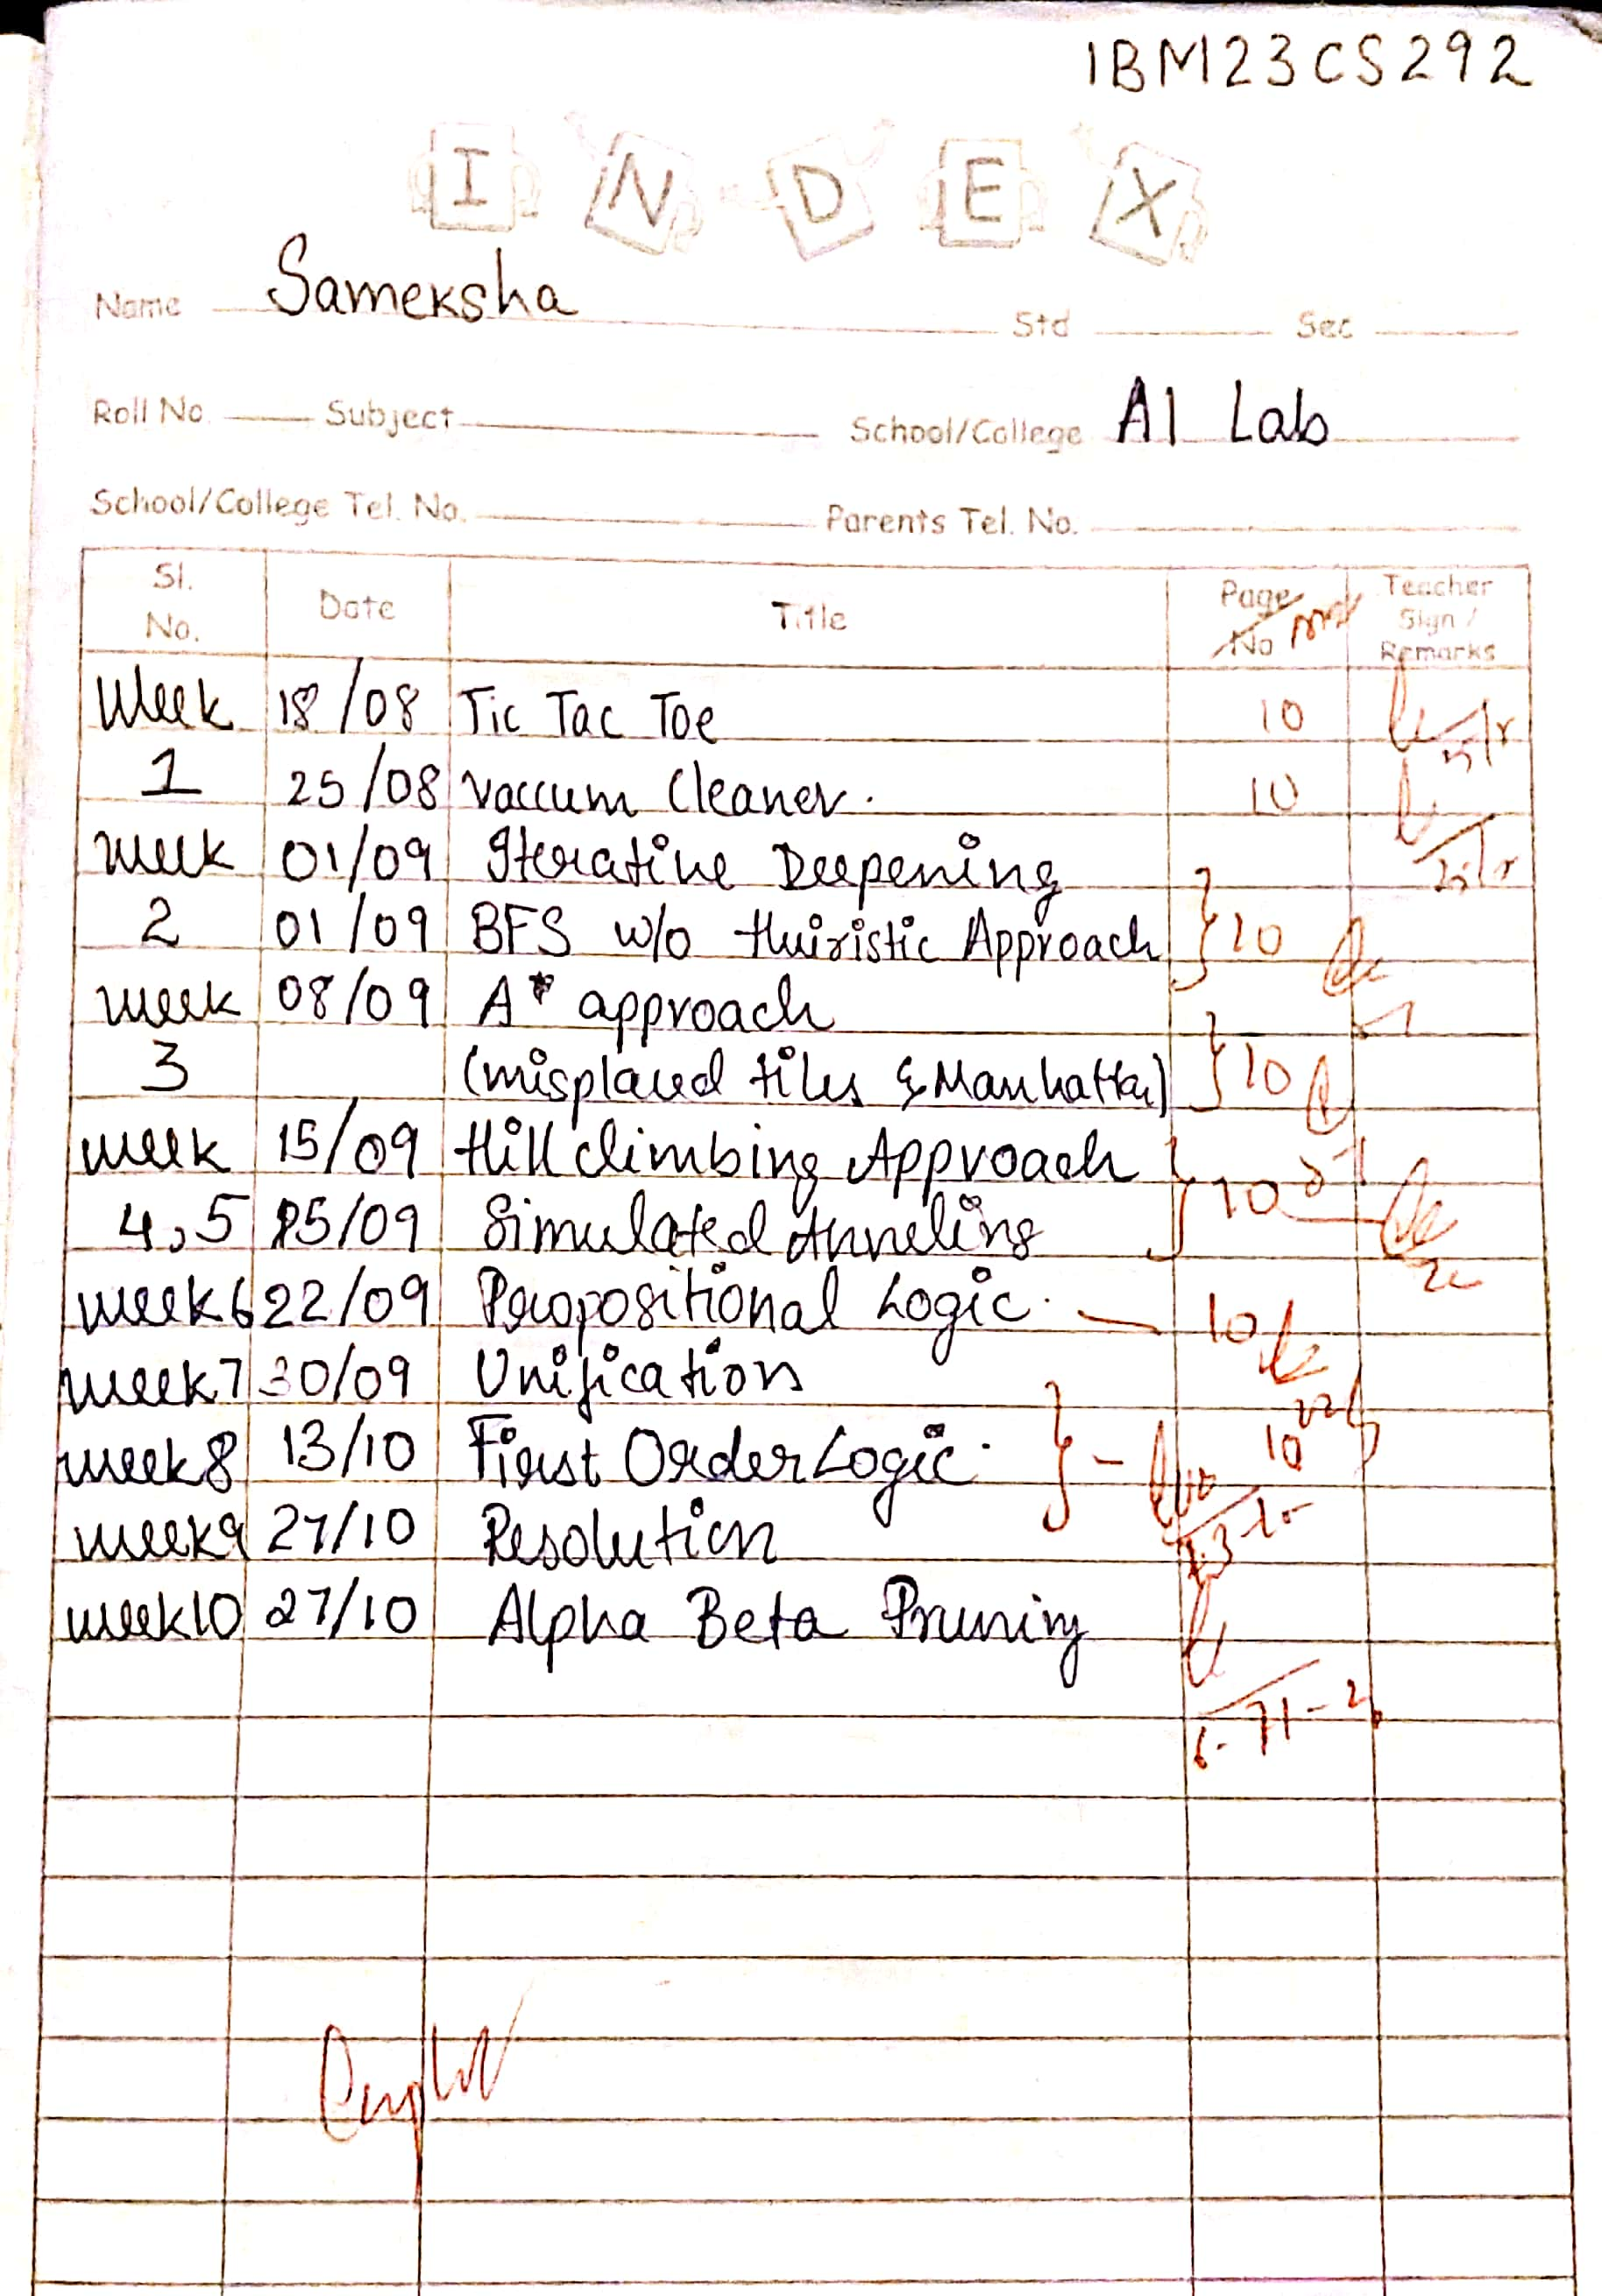 1BM23CS292
INDEX
Name Sameksha Std Sec
Roll No. Subject School/College AI Lab
School/College Tel. No. Parents Tel. No.
Sl. No. Date Title Page No Teacher Sign / Remarks
Week 18/08 Tic Tac Toe 10
1 25/08 Vaccum Cleaner. 10
week 01/09 Iterative Deepening
2 01/09 BFS w/o Huiristic Approach } 10
week 08/09 A* approach
3 (misplaced tiles & Manhattan) } 10
week 15/09 Hill climbing Approach
4,5 15/09 Simulated Anneling } 10
week6 22/09 Propositional Logic. — 10
week7 30/09 Unification
week8 13/10 First Order Logic. } - 10
week9 27/10 Resolution
week10 27/10 Alpha Beta Pruning